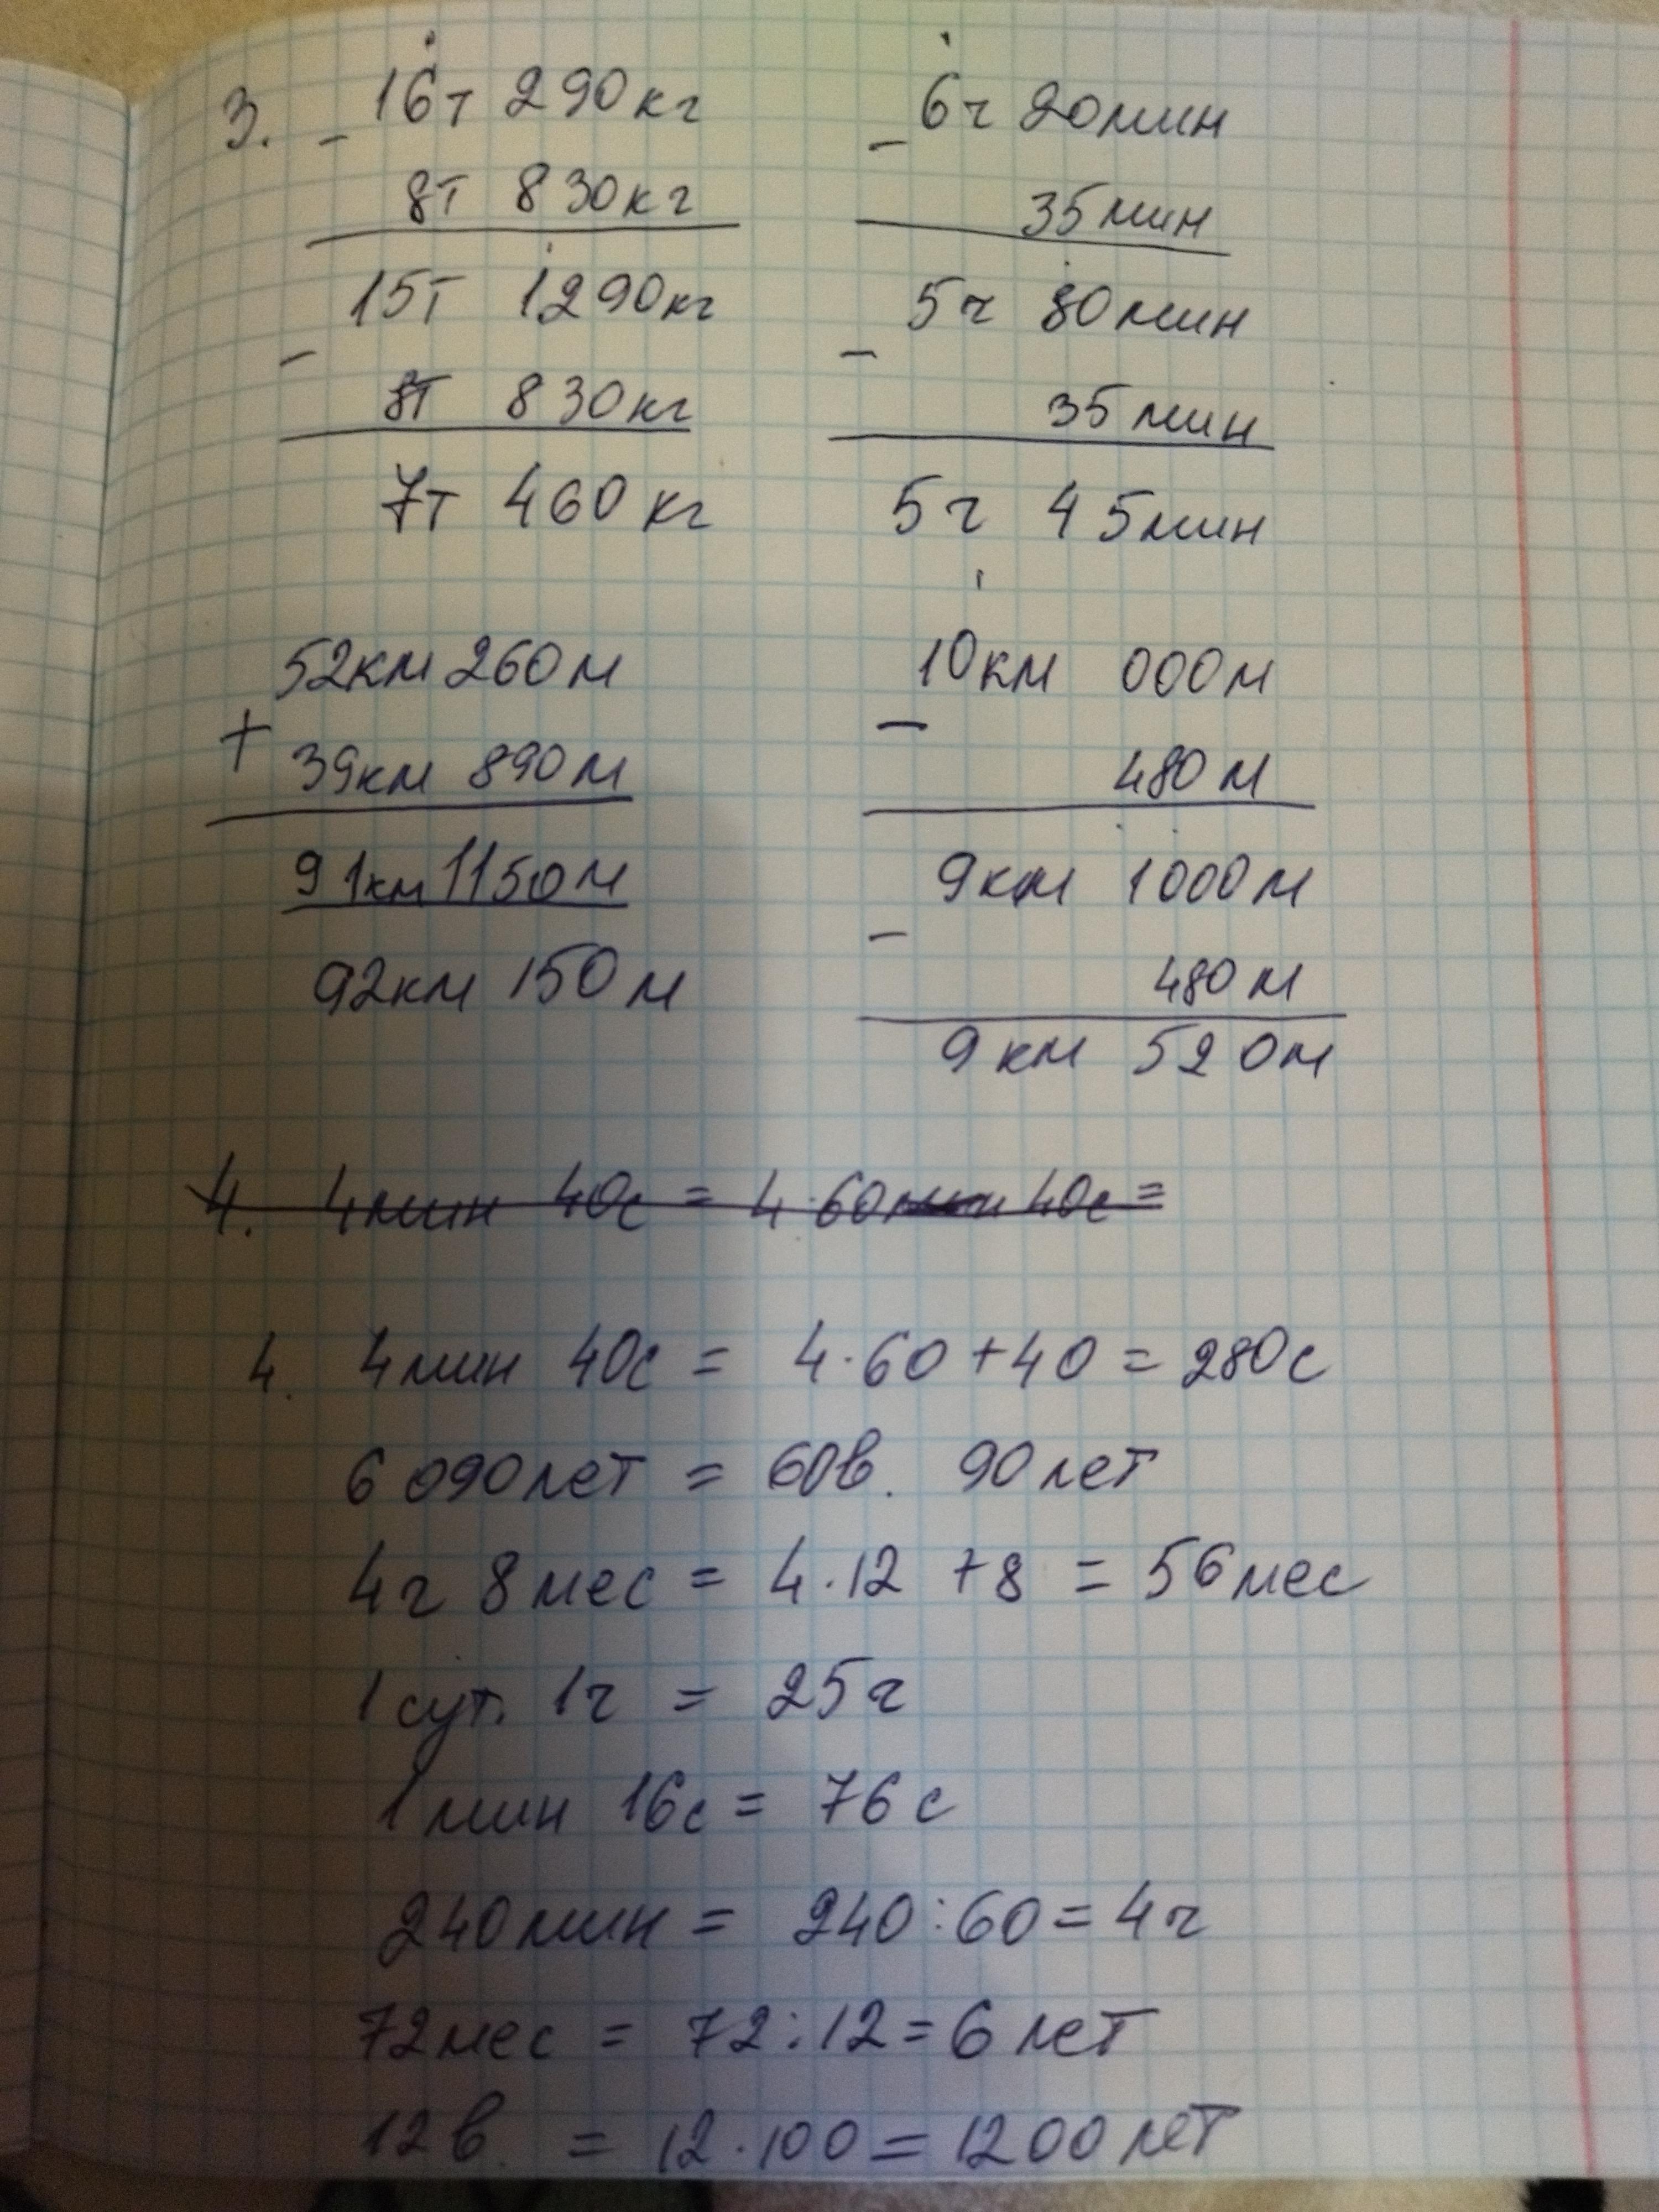 3. - 16т 290кг
8т 830кг
15т 1290кг
-
8т 830кг
7т 460кг
- 6ч 20мин
35мин
5ч 80мин
-
35мин
5ч 45мин
52км 260м
+
39км 890м
91км 1150м
92км 150м
10км 000м
-
480м
9км 1000м
-
480м
9км 520м
4. 4мин 40с = 4·60мин 40с =
4. 4мин 40с = 4·60+40=280с
6 090лет = 60в. 90лет
4г 8мес = 4·12 +8 = 56мес
1 сут. 1ч = 25ч
1 мин 16с = 76с
240мин = 240:60=4ч
72мес = 72:12=6 лет
12в. = 12·100=1200лет